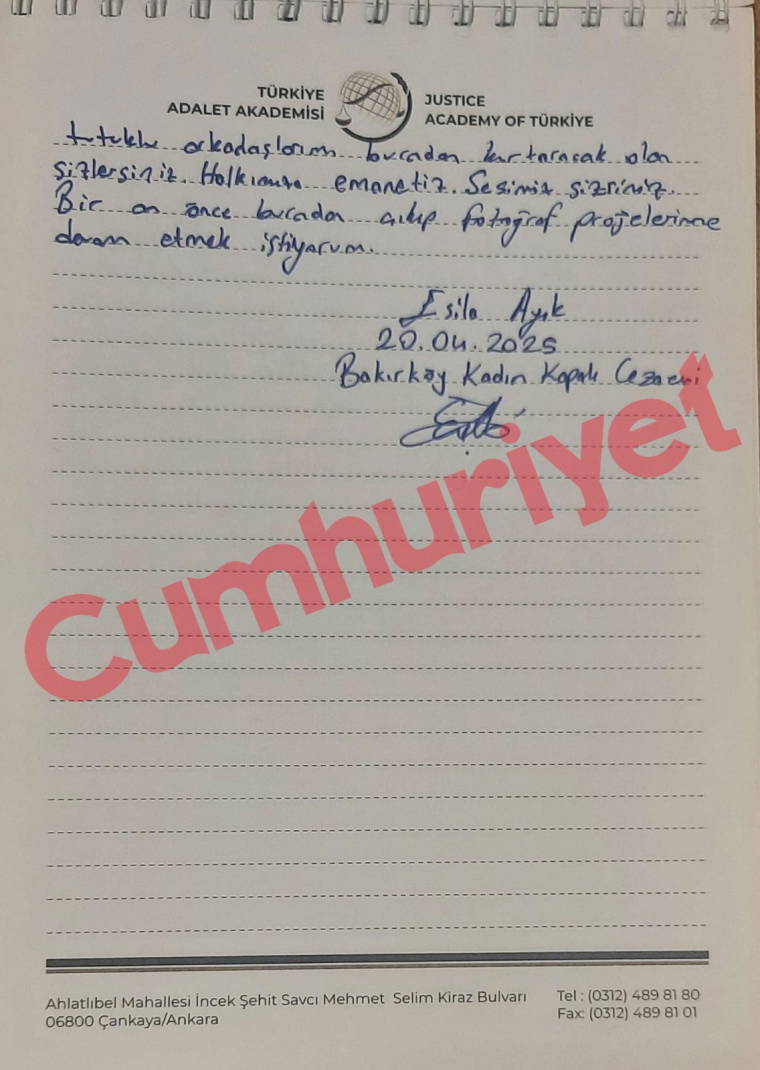 TÜRKİYE
ADALET AKADEMİSİ
JUSTICE
ACADEMY OF TÜRKİYE
tutuklu arkadaşlarımı buradan kurtaracak olan
sizlersiniz. Halkımıza emanetiz. Sesimiz sizsiniz.
Bir an önce buradan çıkıp fotoğraf projelerime
devam etmek istiyorum.
Esila Ayık
20.04.2025
Bakırköy Kadın Kapalı Cezaevi
Cumhuriyet
Ahlatlıbel Mahallesi İncek Şehit Savcı Mehmet Selim Kiraz Bulvarı
06800 Çankaya/Ankara
Tel : (0312) 489 81 80
Fax: (0312) 489 81 01